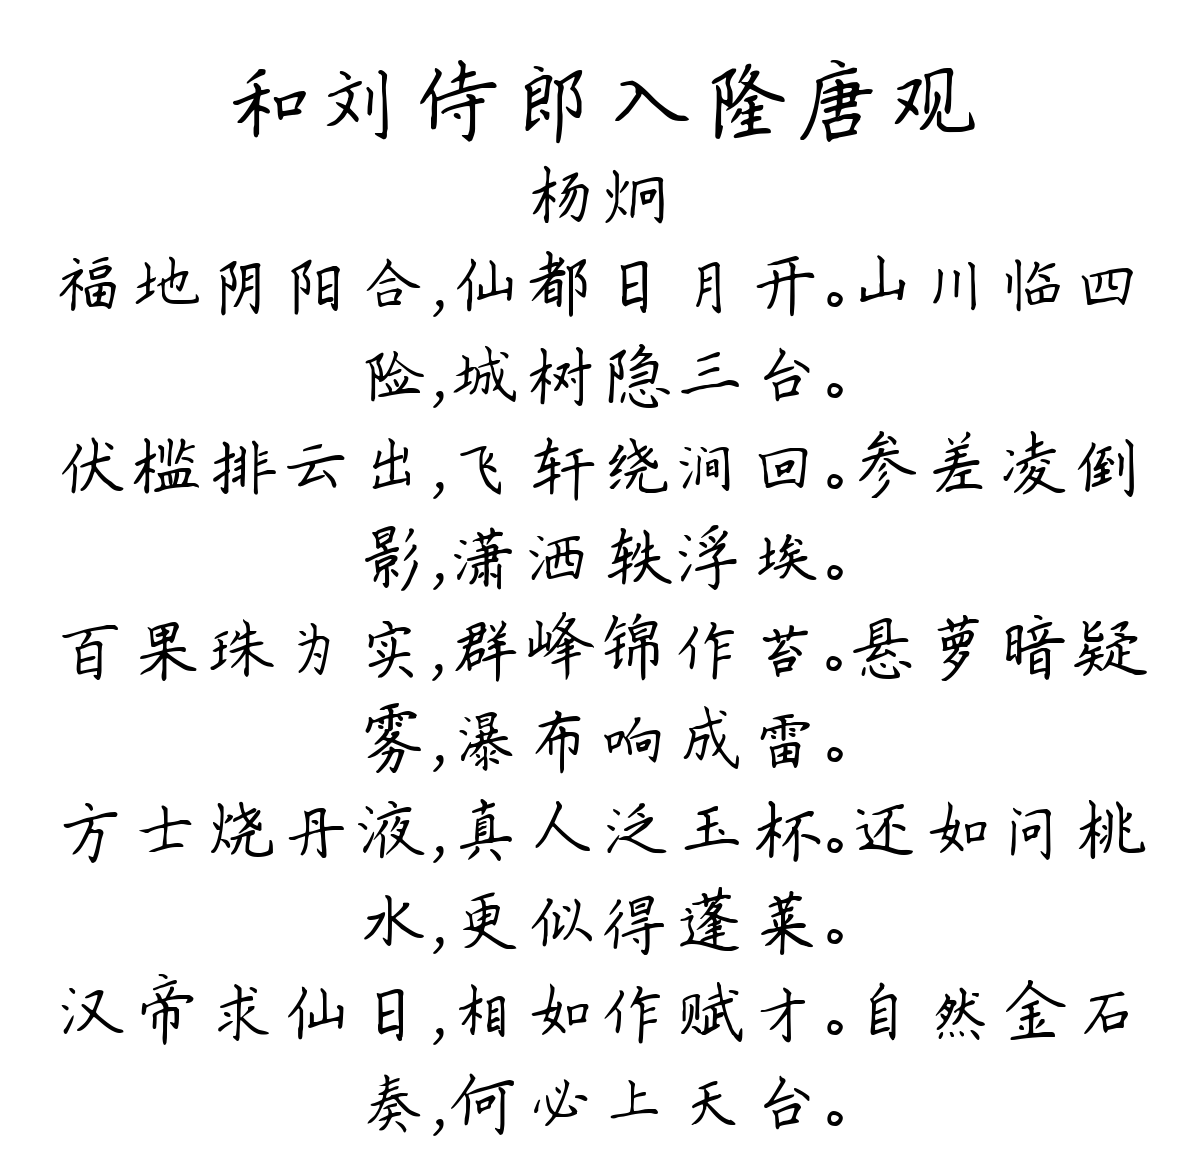 和刘侍郎入隆唐观
杨炯
福地阴阳合,仙都日月开。山川临四
险,城树隐三台。
伏槛排云出,飞轩绕涧回。参差凌倒
影,潇洒轶浮埃。
百果珠为实,群峰锦作苔。悬萝暗疑
雾,瀑布响成雷。
方士烧丹液,真人泛玉杯。还如问桃
水,更似得蓬莱。
汉帝求仙日,相如作赋才。自然金石
奏,何必上天台。